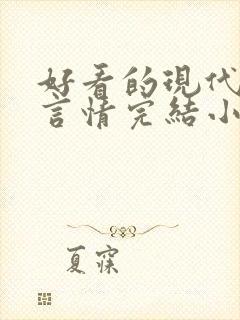 好看的現代
言情完結小
夏寐